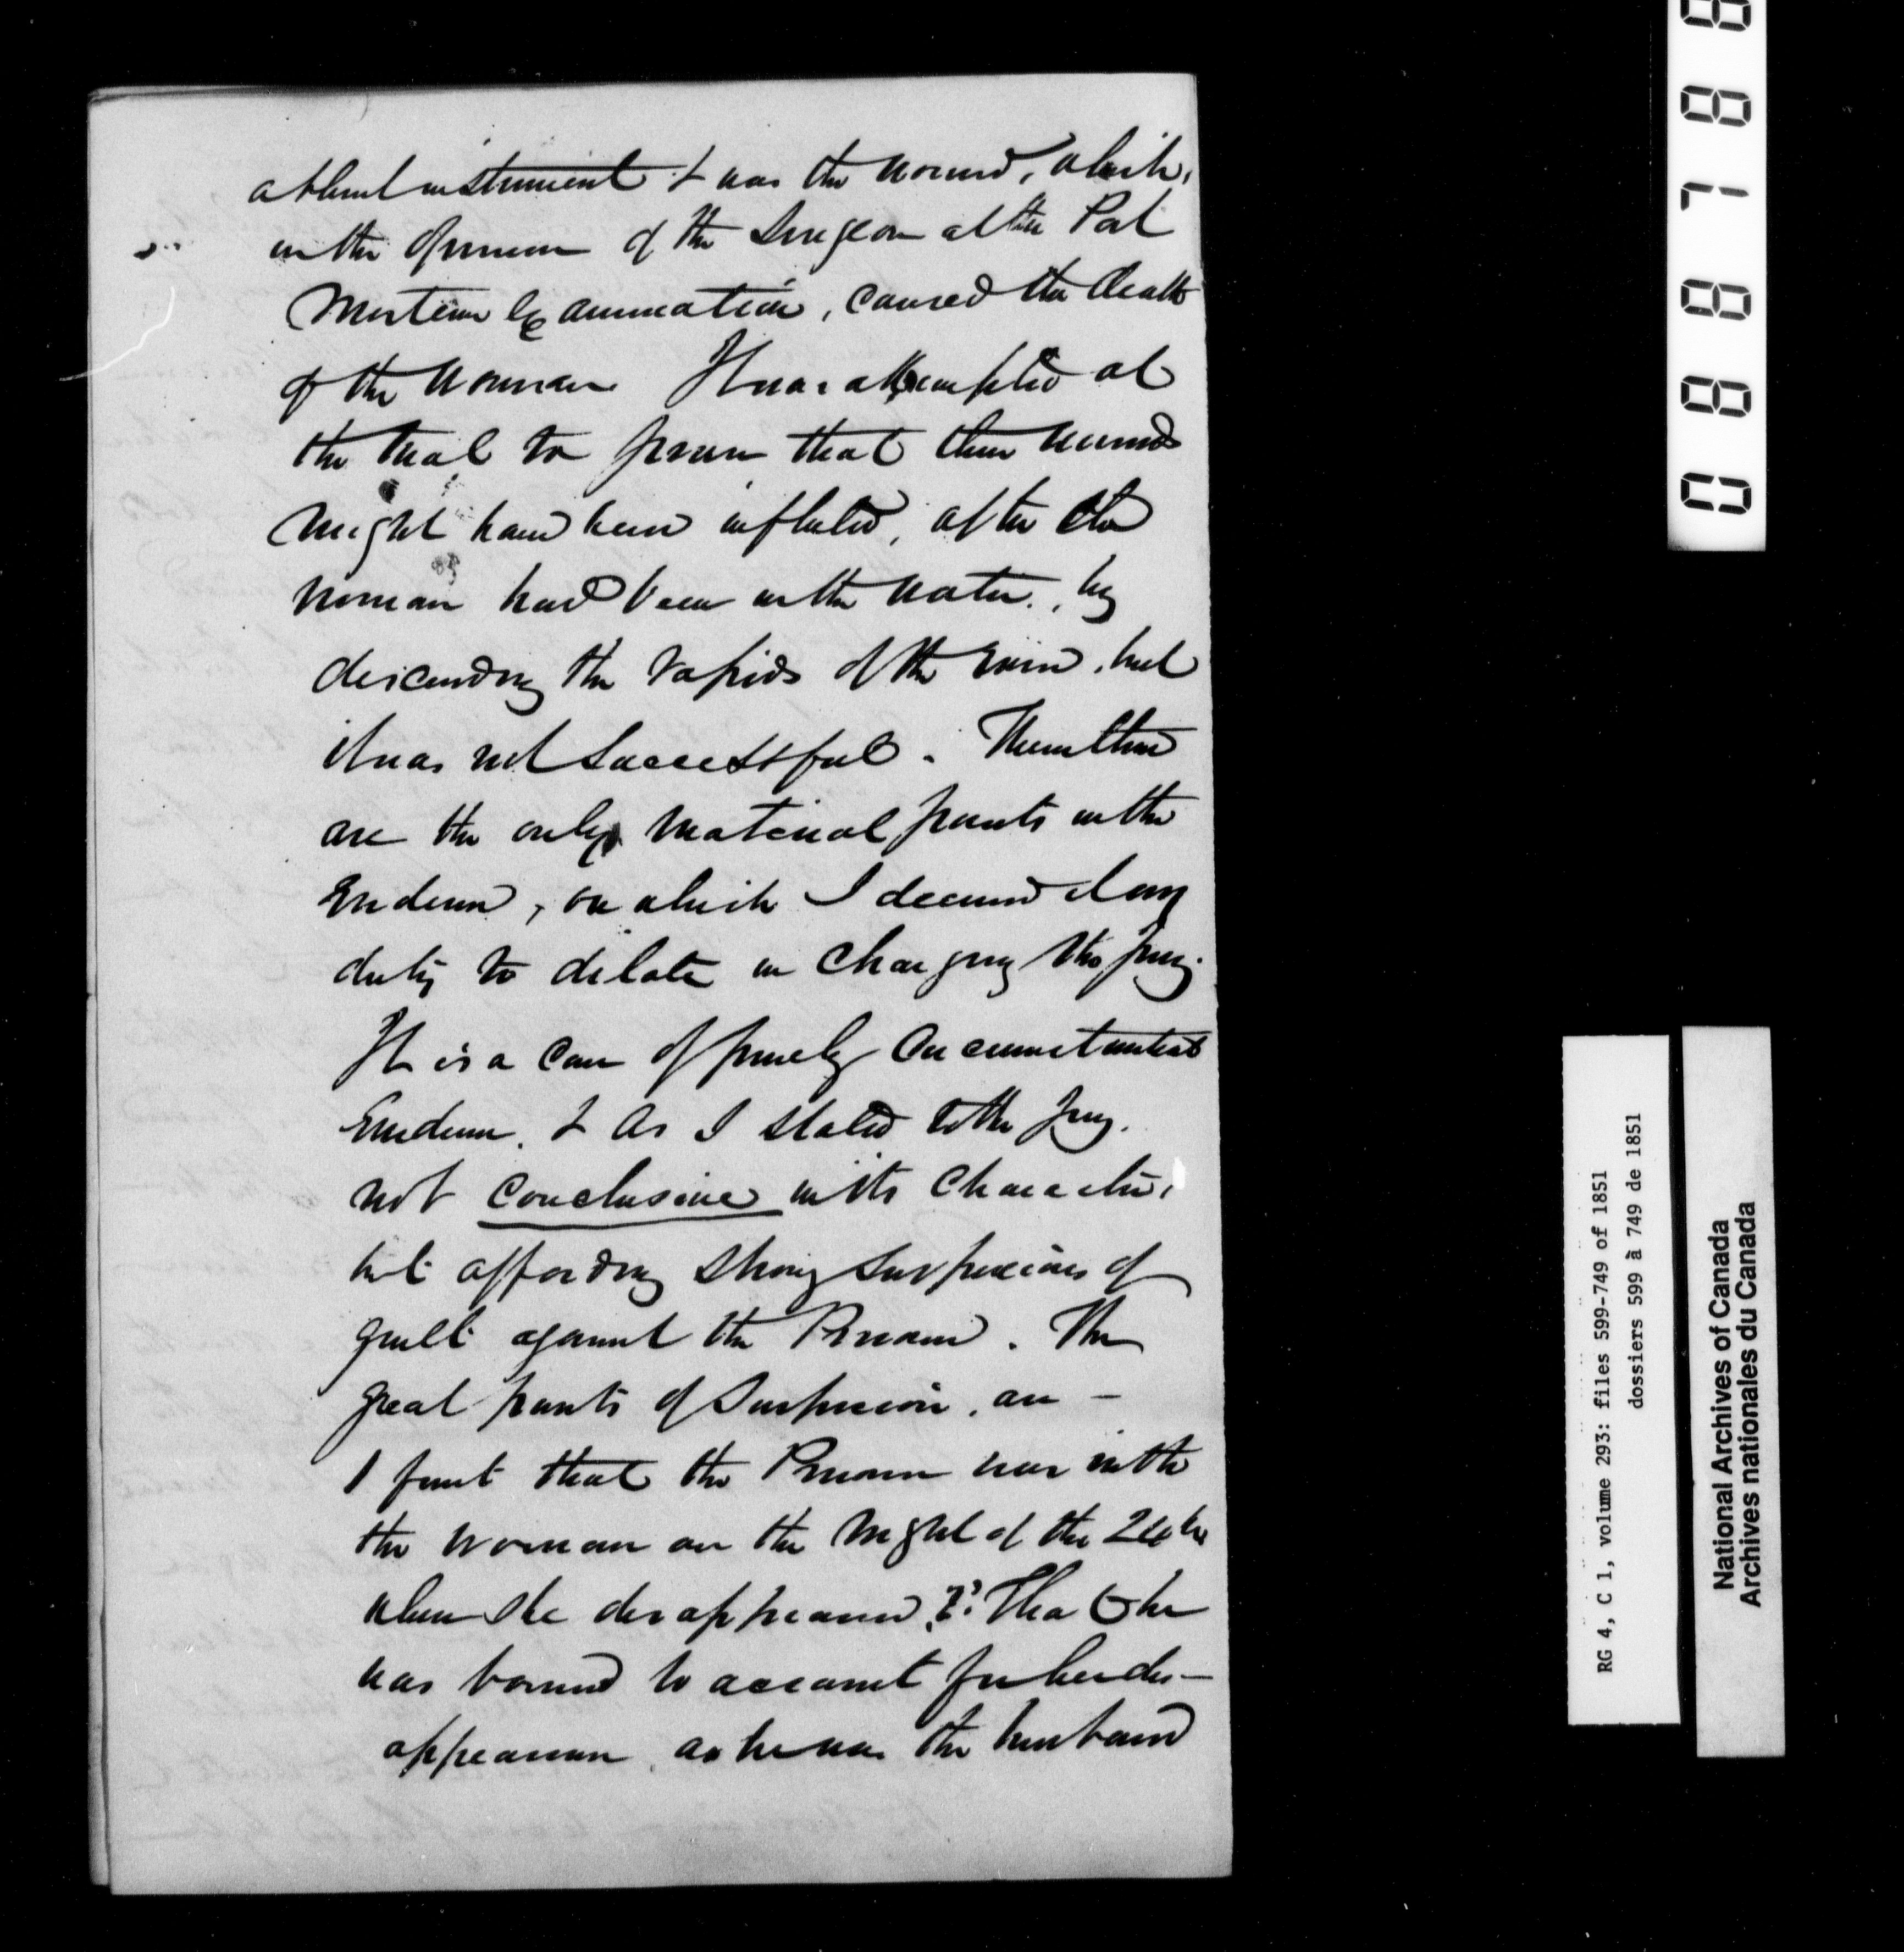 a blunt instrument & was the wound, which,
in the opinion of the Surgeon at the Post
Mortem Examination, caused the death
of the woman It was attempted at
the trial to prove that these wounds
might have been inflicted, after the
woman had been in the water, by
descending the rapids of the river, but
it was not successful. These then
are the only material points in the
Evidence, on which I deemed it my
duty to dilate in Charging the jury.
It is a case of purely Circumstantial
Evidence, & as I stated to the Jury.
not conclusive in its Character,
but affording strong suspicions of
guilt against the Prisoner. The
great points of Suspicion, are –
1 first that the Prisoner was with
the woman on the night of the 26th
when she disappeared, 2d. That he
was bound to account for her dis-
appearance, as he was the husband
088788
RG 4, C 1, volume 293: files 599-749 of 1851
dossiers 599 à 749 de 1851
National Archives of Canada
Archives nationales du Canada